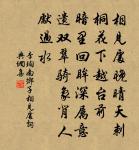 相見處晚晴天刺
桐花下越台前
暗里回眸深屬意
遺雙翠騎象背人
先過水
李珣南鄉子相見處詞